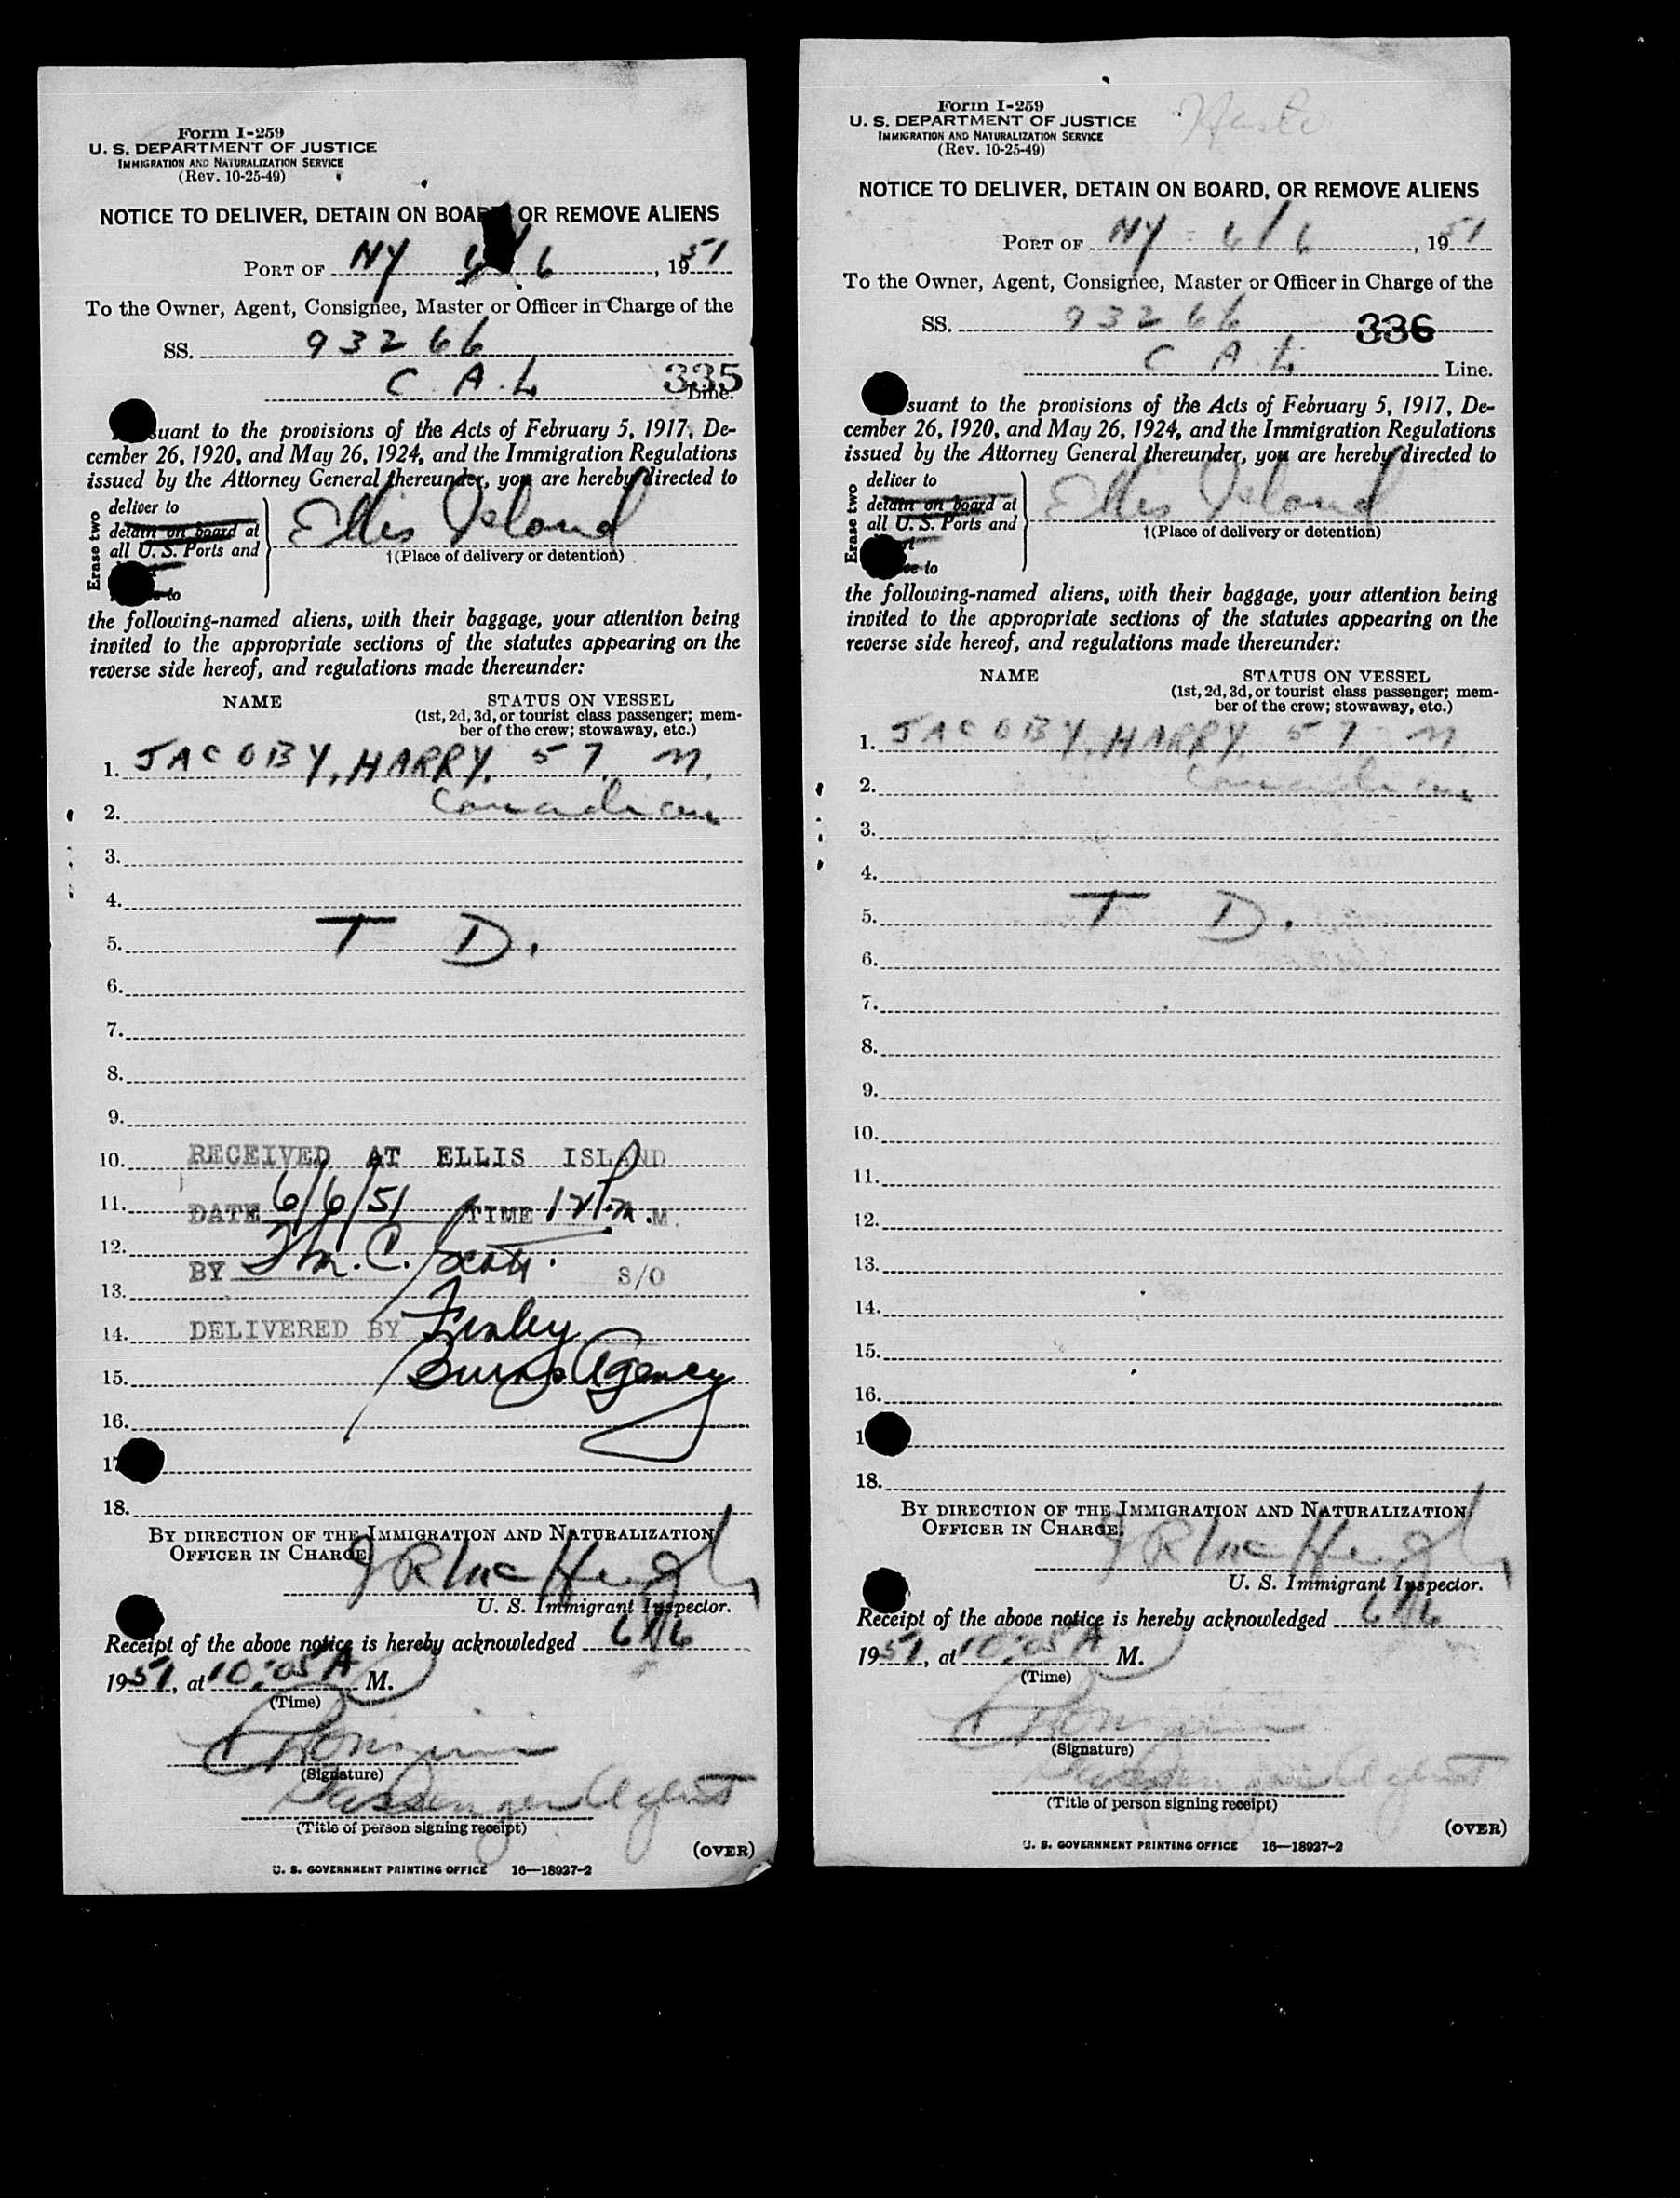 Form I-259
U. S. DEPARTMENT OF JUSTICE
IMMIGRATION AND NATURALIZATION SERVICE
(Rev. 10-25-49)
NOTICE TO DELIVER, DETAIN ON BOARD, OR REMOVE ALIENS
PORT OF NY 6/6, 1951
To the Owner, Agent, Consignee, Master or Officer in Charge of the
SS. 93266
335
C. A. L. Line.
suant to the provisions of the Acts of February 5, 1917, De-
cember 26, 1920, and May 26, 1924, and the Immigration Regulations
issued by the Attorney General thereunder, you are hereby directed to
Erase two
deliver to
detain on board at
all U. S. Ports and
to
Ellis Island
†(Place of delivery or detention)
the following-named aliens, with their baggage, your attention being
invited to the appropriate sections of the statutes appearing on the
reverse side hereof, and regulations made thereunder:
NAME STATUS ON VESSEL
(1st, 2d, 3d, or tourist class passenger; mem-
ber of the crew; stowaway, etc.)
1. JACOBY, HARRY, 57, M,
2. Canadian
3.
4.
5. T D.
6.
7.
8.
9.
10. RECEIVED AT ELLIS ISLAND
11. DATE 6/6/51 TIME 12 P.M. M.
12.
BY C. Scott. S/O
13.
14. DELIVERED BY Finley
15. Burns Agency
16.
17
18.
BY DIRECTION OF THE IMMIGRATION AND NATURALIZATION
OFFICER IN CHARGE.
J R McHugh
U. S. Immigrant Inspector.
Receipt of the above notice is hereby acknowledged 6/6
1951, at 10:05 A M.
(Time)
(Signature)
Passenger Agent
(Title of person signing receipt)
(OVER)
U. S. GOVERNMENT PRINTING OFFICE 16—18927-2
Form I-259
U. S. DEPARTMENT OF JUSTICE
IMMIGRATION AND NATURALIZATION SERVICE
(Rev. 10-25-49)
NOTICE TO DELIVER, DETAIN ON BOARD, OR REMOVE ALIENS
PORT OF NY 6/6, 1951
To the Owner, Agent, Consignee, Master or Officer in Charge of the
SS. 93266 336
C A L Line.
suant to the provisions of the Acts of February 5, 1917, De-
cember 26, 1920, and May 26, 1924, and the Immigration Regulations
issued by the Attorney General thereunder, you are hereby directed to
Erase two
deliver to
detain on board at
all U. S. Ports and
to
Ellis Island
†(Place of delivery or detention)
the following-named aliens, with their baggage, your attention being
invited to the appropriate sections of the statutes appearing on the
reverse side hereof, and regulations made thereunder:
NAME STATUS ON VESSEL
(1st, 2d, 3d, or tourist class passenger; mem-
ber of the crew; stowaway, etc.)
1. JACOBY, HARRY, 57 M
2. Canadian
3.
4.
5. T D.
6.
7.
8.
9.
10.
11.
12.
13.
14.
15.
16.
1
18.
BY DIRECTION OF THE IMMIGRATION AND NATURALIZATION
OFFICER IN CHARGE.
J R McHugh
U. S. Immigrant Inspector.
Receipt of the above notice is hereby acknowledged 6/6
1951, at 10:05 A M.
(Time)
(Signature)
Passenger Agent
(Title of person signing receipt)
(OVER)
U. S. GOVERNMENT PRINTING OFFICE 16—18927-2